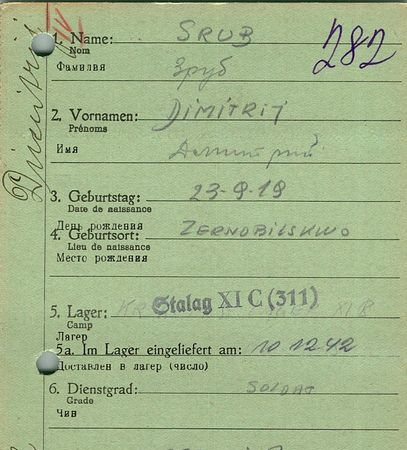 282
1. Name: SRUB
Nom
Фамилия Зруб
2. Vornamen: DIMITRIJ
Prénoms
Имя Дмитрий
3. Geburtstag: 23-9-19
Date de naissance
День рождения
4. Geburtsort: ZERNOBILSKWO
Lieu de naissance
Место рождения
5. Lager: Stalag XI C (311)
Camp
Лагер
5a. Im Lager eingeliefert am: 10 12 42
Доставлен в лагер (число)
6. Dienstgrad: SOLDAT
Grade
Чин